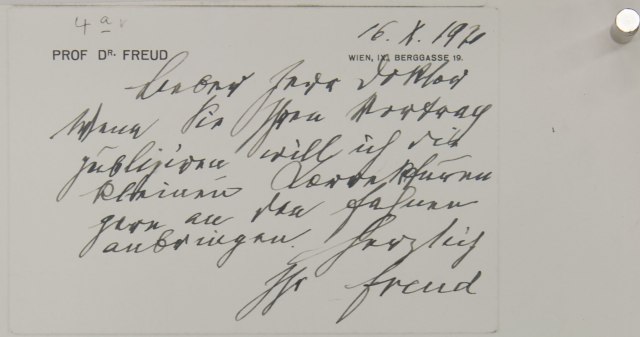 4a
16. X. 1920
PROF DR. FREUD
WIEN, IX., BERGGASSE 19.
Lieber Herr Doktor
Wenn Sie Ihren Vortrag
publiziren will ich die
kleinen Korrekturen
gern an den Fahnen
anbringen. Herzlich
Ihr Freud